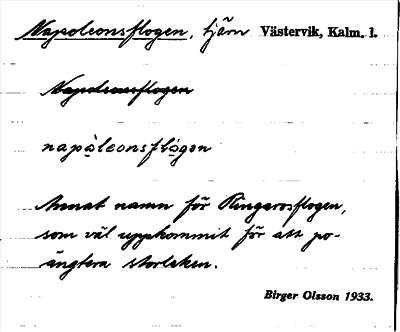 Napoleonsflogen, tjärn Västervik, Kalm. l.
Napoleonsflogen
napòleonsflògen
Annat namn för Ringarosflogen,
som väl uppkommit för att po-
ängtera storleken.
Birger Olsson 1933.